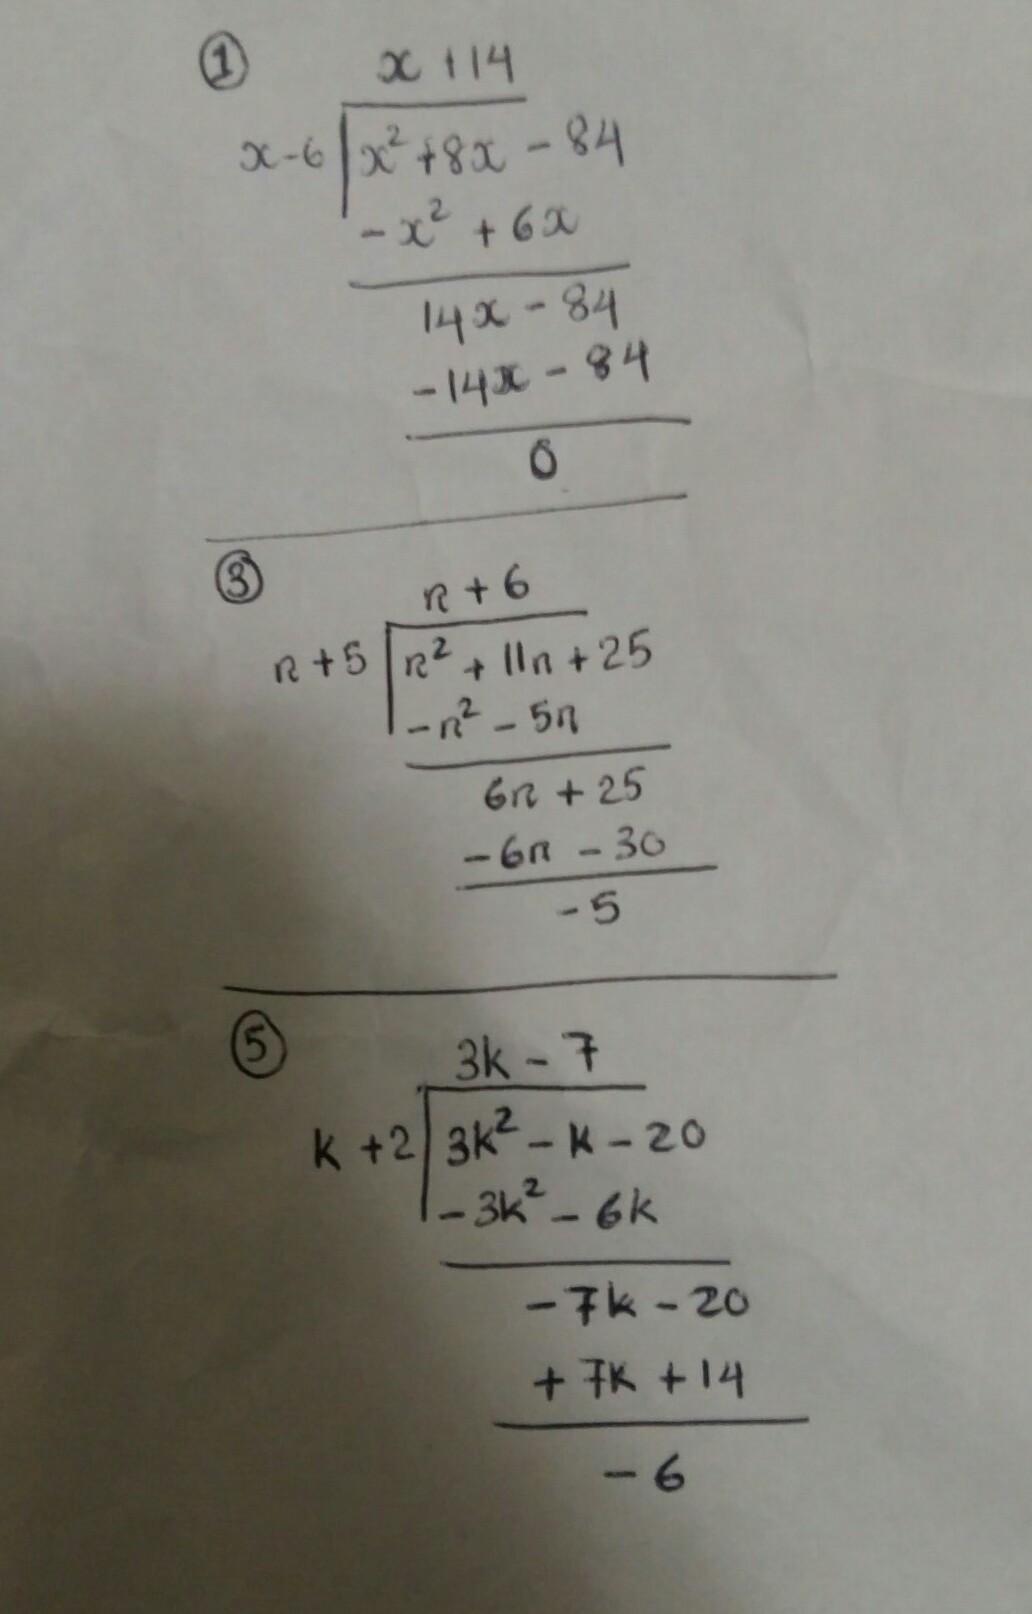 ① x + 14
x - 6 | x² + 8x - 84
- x² + 6x
14x - 84
- 14x - 84
0
③ n + 6
n + 5 | n² + 11n + 25
- n² - 5n
6n + 25
- 6n - 30
- 5
⑤ 3k - 7
k + 2 | 3k² - k - 20
- 3k² - 6k
- 7k - 20
+ 7k + 14
- 6